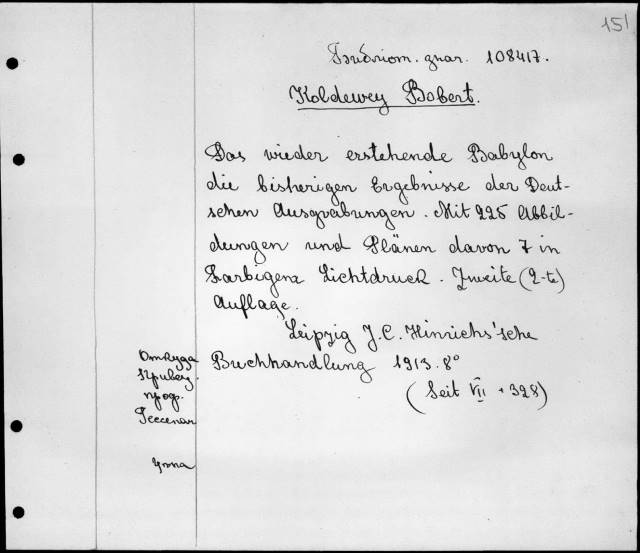 151
Библиот. знак. 108417.
Koldewey Bobert.
Das wieder erstehende Babylon
die bisherigen Ergebnisse der Deut-
schen Ausgrabungen. Mit 225 Abbil-
dungen und Plänen davon 7 in
Farbigem Lichtdruck. Zweite (2-te)
Auflage.
Leipzig J. C. Hinrichs'sche
Buchhandlung 1913. 8°
(Seit VII + 328)
Откуда
прив.
проф.